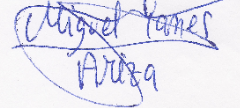 Miguel Yanes
Ariza